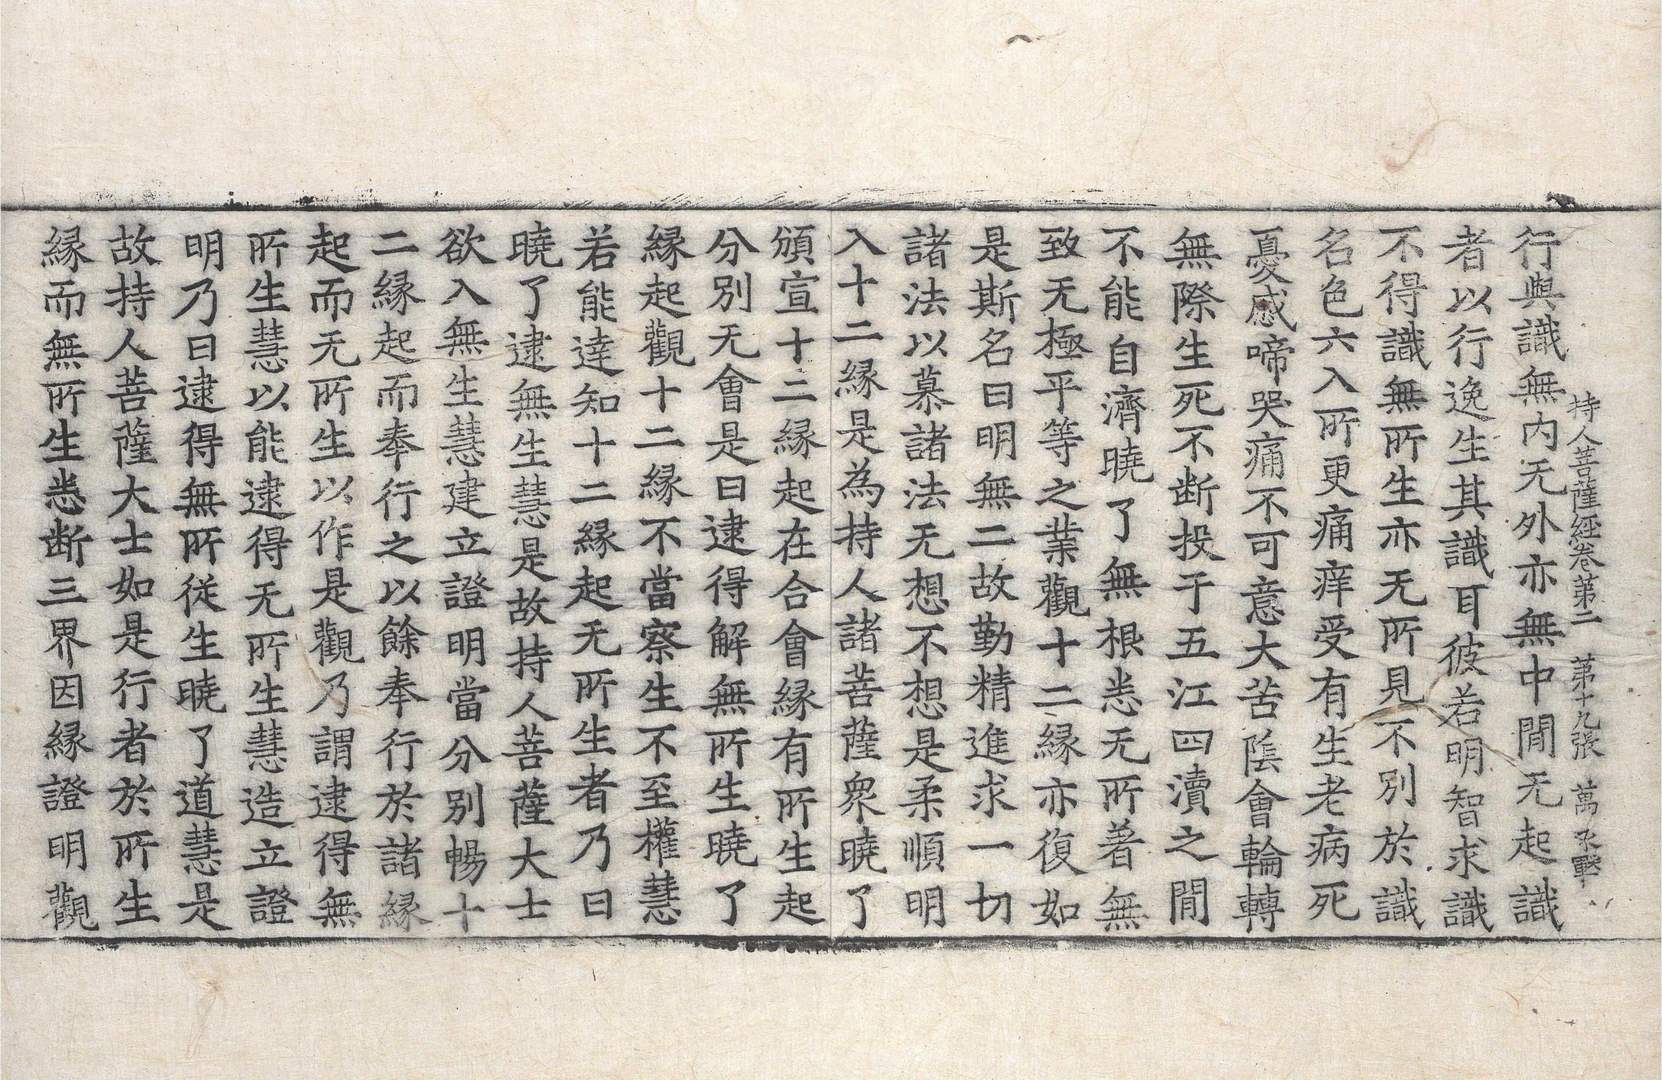 持人菩薩經卷第二 第十九張 萬
行與識無內无外亦無中閒无起識
者以行逸生其識耳彼若明智求識
不得識無所生亦无所見不別於識
名色六入所更痛痒受有生老病死
憂慼啼哭痛不可意大苦陰會輪轉
無際生死不断投于五江四瀆之閒
不能自濟曉了無根悉无所著無
致无極平等之業觀十二縁亦復如
是斯名曰明無二故勤精進求一切
諸法以慕諸法无想不想是柔順明
入十二縁是為持人諸菩薩衆曉了
頒宣十二縁起在合會縁有所生起
分別无會是曰逮得解無所生曉了
縁起觀十二縁不當察生不至權慧
若能達知十二縁起无所生者乃曰
曉了逮無生慧是故持人菩薩大士
欲入無生慧建立證明當分別暢十
二縁起而奉行之以餘奉行於諸縁
起而无所生以作是觀乃謂逮得無
所生慧以能逮得无所生慧造立證
明乃曰逮得無所從生曉了道慧是
故持人菩薩大士如是行者於所生
縁而無所生悉断三界因縁證明觀